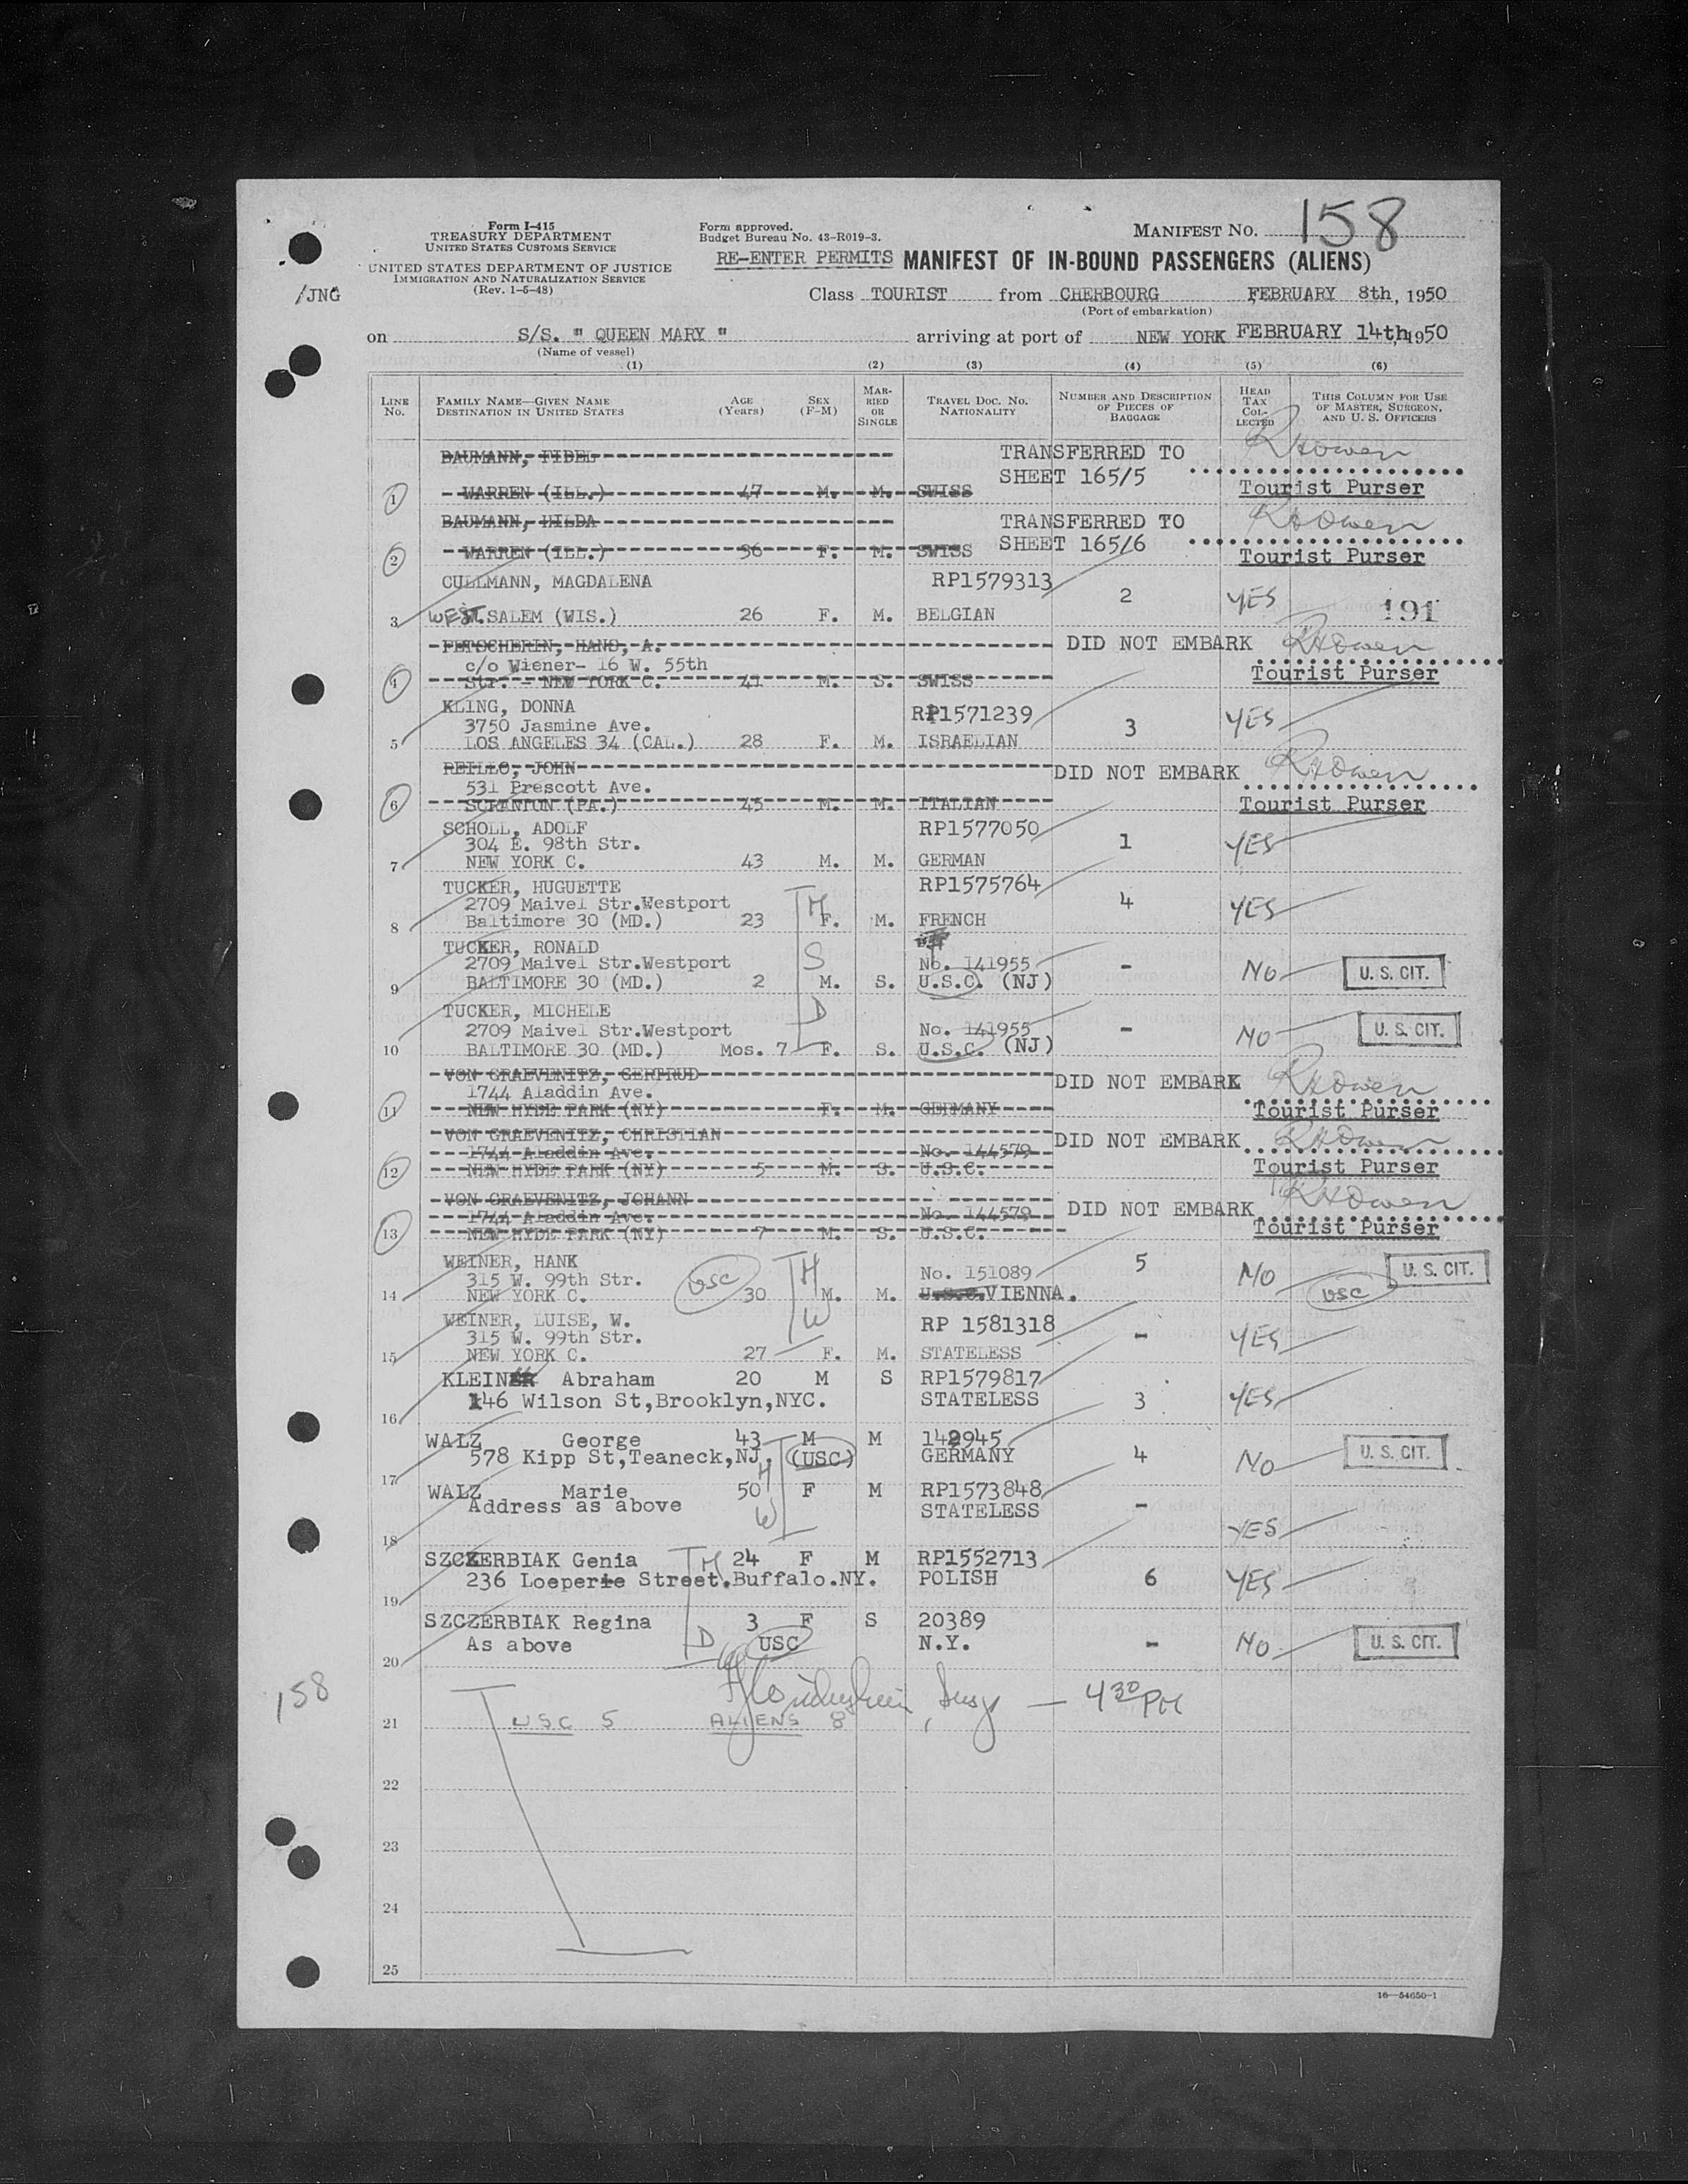 Form I-415
TREASURY DEPARTMENT
UNITED STATES CUSTOMS SERVICE
UNITED STATES DEPARTMENT OF JUSTICE
IMMIGRATION AND NATURALIZATION SERVICE
(Rev. 1-5-48)
/JNG
Form approved.
Budget Bureau No. 43-R019-3.
MANIFEST No. 158
RE-ENTER PERMITS MANIFEST OF IN-BOUND PASSENGERS (ALIENS)
Class TOURIST from CHERBOURG FEBRUARY 8th, 1950
(Port of embarkation)
on S/S. " QUEEN MARY " arriving at port of NEW YORK FEBRUARY 14th, 1950
(Name of vessel)
(1) (2) (3) (4) (5) (6)
LINE No. FAMILY NAME—GIVEN NAME DESTINATION IN UNITED STATES AGE (Years) SEX (F-M) MARRIED OR SINGLE TRAVEL DOC. NO. NATIONALITY NUMBER AND DESCRIPTION OF PIECES OF BAGGAGE HEAD TAX COLLECTED THIS COLUMN FOR USE OF MASTER, SURGEON, AND U. S. OFFICERS
BAUMANN, FIDEL TRANSFERRED TO RHOwen
SHEET 165/5
1 WARREN (ILL.) 47 M. M. SWISS Tourist Purser
BAUMANN, HILDA TRANSFERRED TO RHOwen
SHEET 165/6
2 WARREN (ILL.) 36 F. M. SWISS Tourist Purser
CULLMANN, MAGDALENA RP1579313
2 YES 191
3 WEST.SALEM (WIS.) 26 F. M. BELGIAN
FETSCHERIN, HANS, A. DID NOT EMBARK RHOwen
c/o Wiener- 16 W. 55th
4 Str. - NEW YORK C. 41 M. S. SWISS Tourist Purser
KLING, DONNA RP1571239
3750 Jasmine Ave. 3 YES
5 LOS ANGELES 34 (CAL.) 28 F. M. ISRAELIAN
REILLO, JOHN DID NOT EMBARK RHOwen
531 Prescott Ave.
6 SCRANTON (PA.) 45 M. M. ITALIAN Tourist Purser
SCHOLL, ADOLF RP1577050
304 E. 98th Str. 1 YES
7 NEW YORK C. 43 M. M. GERMAN
TUCKER, HUGUETTE RP1575764
2709 Maivel Str.Westport M 4 YES
8 Baltimore 30 (MD.) 23 F. M. FRENCH
TUCKER, RONALD
2709 Maivel Str.Westport S No. 141955 - NO U. S. CIT.
9 BALTIMORE 30 (MD.) 2 M. S. U.S.C. (NJ)
TUCKER, MICHELE D
2709 Maivel Str.Westport No. 141955 - NO U. S. CIT.
10 BALTIMORE 30 (MD.) Mos. 7 F. S. U.S.C. (NJ)
VON GRAEVENITZ, GERTRUD DID NOT EMBARK RHOwen
1744 Aladdin Ave.
11 NEW HYDE PARK (NY) F. M. GERMANY Tourist Purser
VON GRAEVENITZ, CHRISTIAN DID NOT EMBARK RHOwen
1744 Aladdin Ave. No. 144579
12 NEW HYDE PARK (NY) 5 M. S. U.S.C. Tourist Purser
VON GRAEVENITZ, JOHANN DID NOT EMBARK RHOwen
1744 Aladdin Ave. No. 144579
13 NEW HYDE PARK (NY) 7 M. S. U.S.C. Tourist Purser
WEINER, HANK H 5 U. S. CIT.
315 W. 99th Str. USC No. 151089 NO
14 NEW YORK C. 30 M. M. U.S.C.VIENNA. USC
WEINER, LUISE, W. W RP 1581318
315 W. 99th Str. - YES
15 NEW YORK C. 27 F. M. STATELESS
KLEIN Abraham 20 M S RP1579817
146 Wilson St,Brooklyn,NYC. STATELESS 3 YES
16
WALZ George 43 M M 142945
578 Kipp St,Teaneck,NJ. (USC) GERMANY 4 NO U. S. CIT.
17 H
WALZ Marie 50 F M RP1573848
Address as above W STATELESS - YES
18
SZCZERBIAK Genia M 24 F M RP1552713
236 Loeperie Street.Buffalo.NY. POLISH 6 YES
19
SZCZERBIAK Regina 3 F S 20389
As above D USC N.Y. - NO U. S. CIT.
20
158
— 4 30 PM
21 USC 5 ALIENS 8
22
23
24
25
16—54650-1